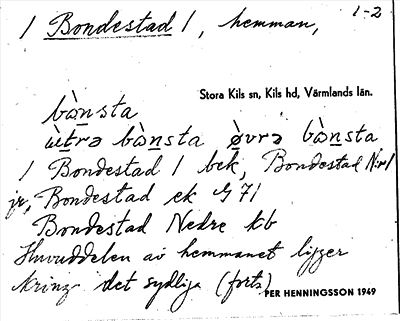 / Bondestad /, hemman,
1-2
Stora Kils sn, Kils hd, Värmlands län.
bò̀nsta
ùtrə bò̀nsta ø̀vrə bò̀nsta
/ Bondestad / bek, Bondestad N:r 1
jr, Bondestad ek G 71
Bondestad Nedre kb
Huvuddelen av hemmanet ligger
kring det sydliga (forts)
PER HENNINGSSON 1949